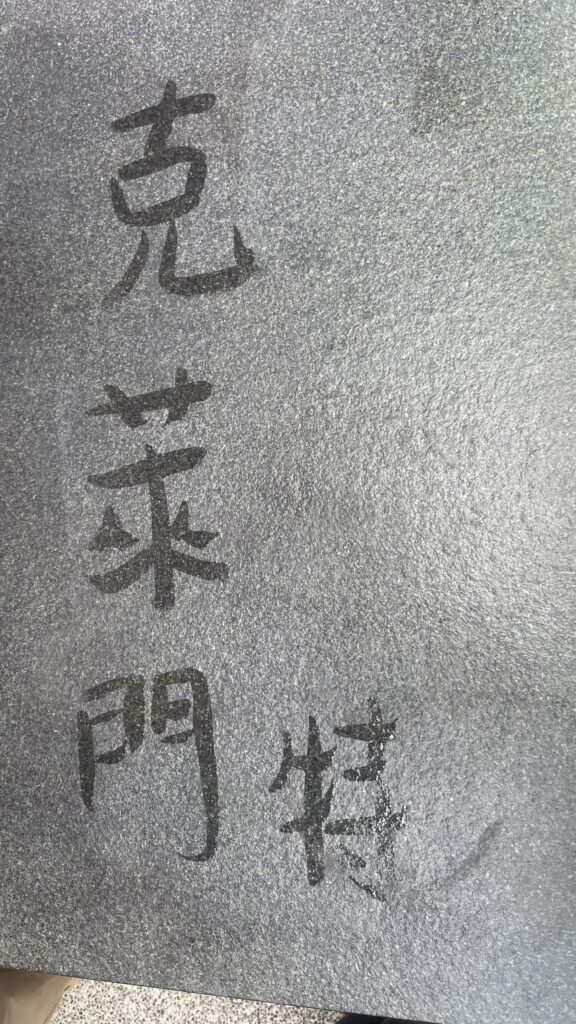 克萊門
特